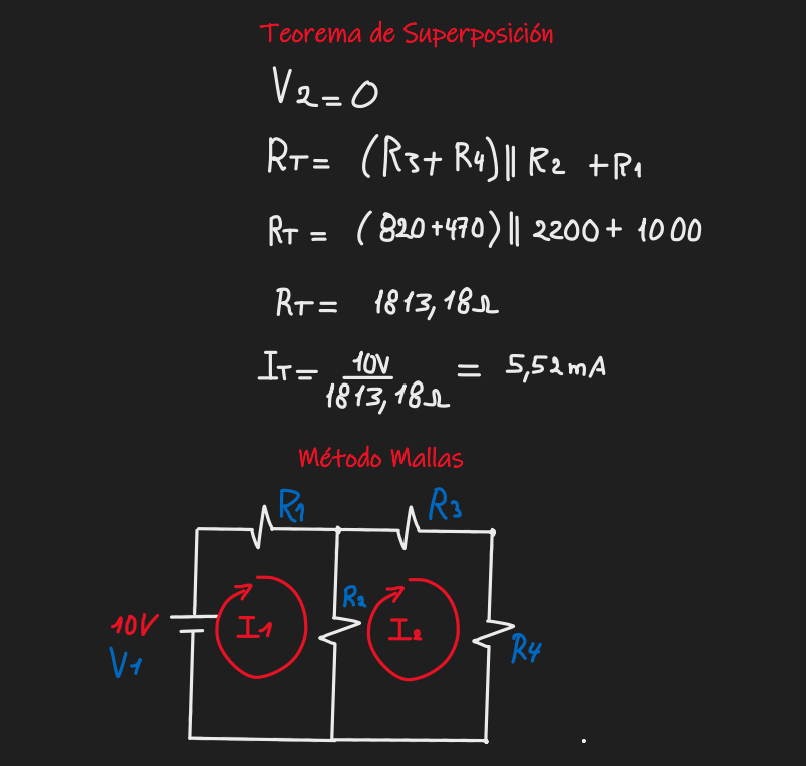 Teorema de Superposición
V2 = 0
RT = (R3 + R4) || R2 + R1
RT = (820+470) || 2200 + 1000
RT = 1813,18Ω
IT = 10V / 1813,18Ω = 5,52mA
Método Mallas
R1 R3
10V I1 R2 I2
V1 R4